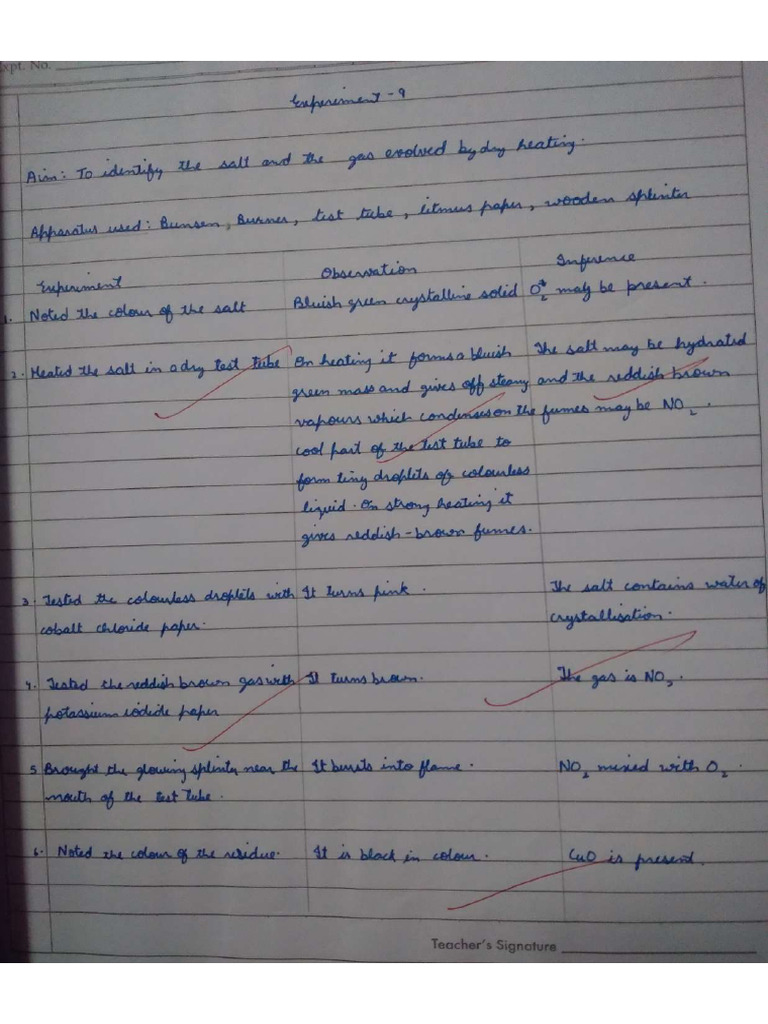 Expt. No.
Experiment - 9
Aim: To identify the salt and the gas evolved by dry heating.
Apparatus used: Bunsen, Burner, test tube, litmus paper, wooden splinter
Experiment Observation Inference
1. Noted the colour of the salt Bluish green crystalline solid may be present.
2. Heated the salt in a dry test tube On heating it forms a bluish The salt may be hydrated
green mass and gives off steamy and the reddish brown
vapours which condenses on the fumes may be NO2.
cool part of the test tube to
form tiny droplets of colourless
liquid. On strong heating it
gives reddish-brown fumes.
3. Tested the colourless droplets with It turns pink. The salt contains water of
cobalt chloride paper. crystallisation.
4. Tested the reddish brown gas with It turns brown. The gas is NO2.
potassium iodide paper
5 Brought the glowing splinter near the It bursts into flame. NO2 mixed with O2.
mouth of the test tube.
6. Noted the colour of the residue. It is black in colour. CuO is present.
Teacher's Signature